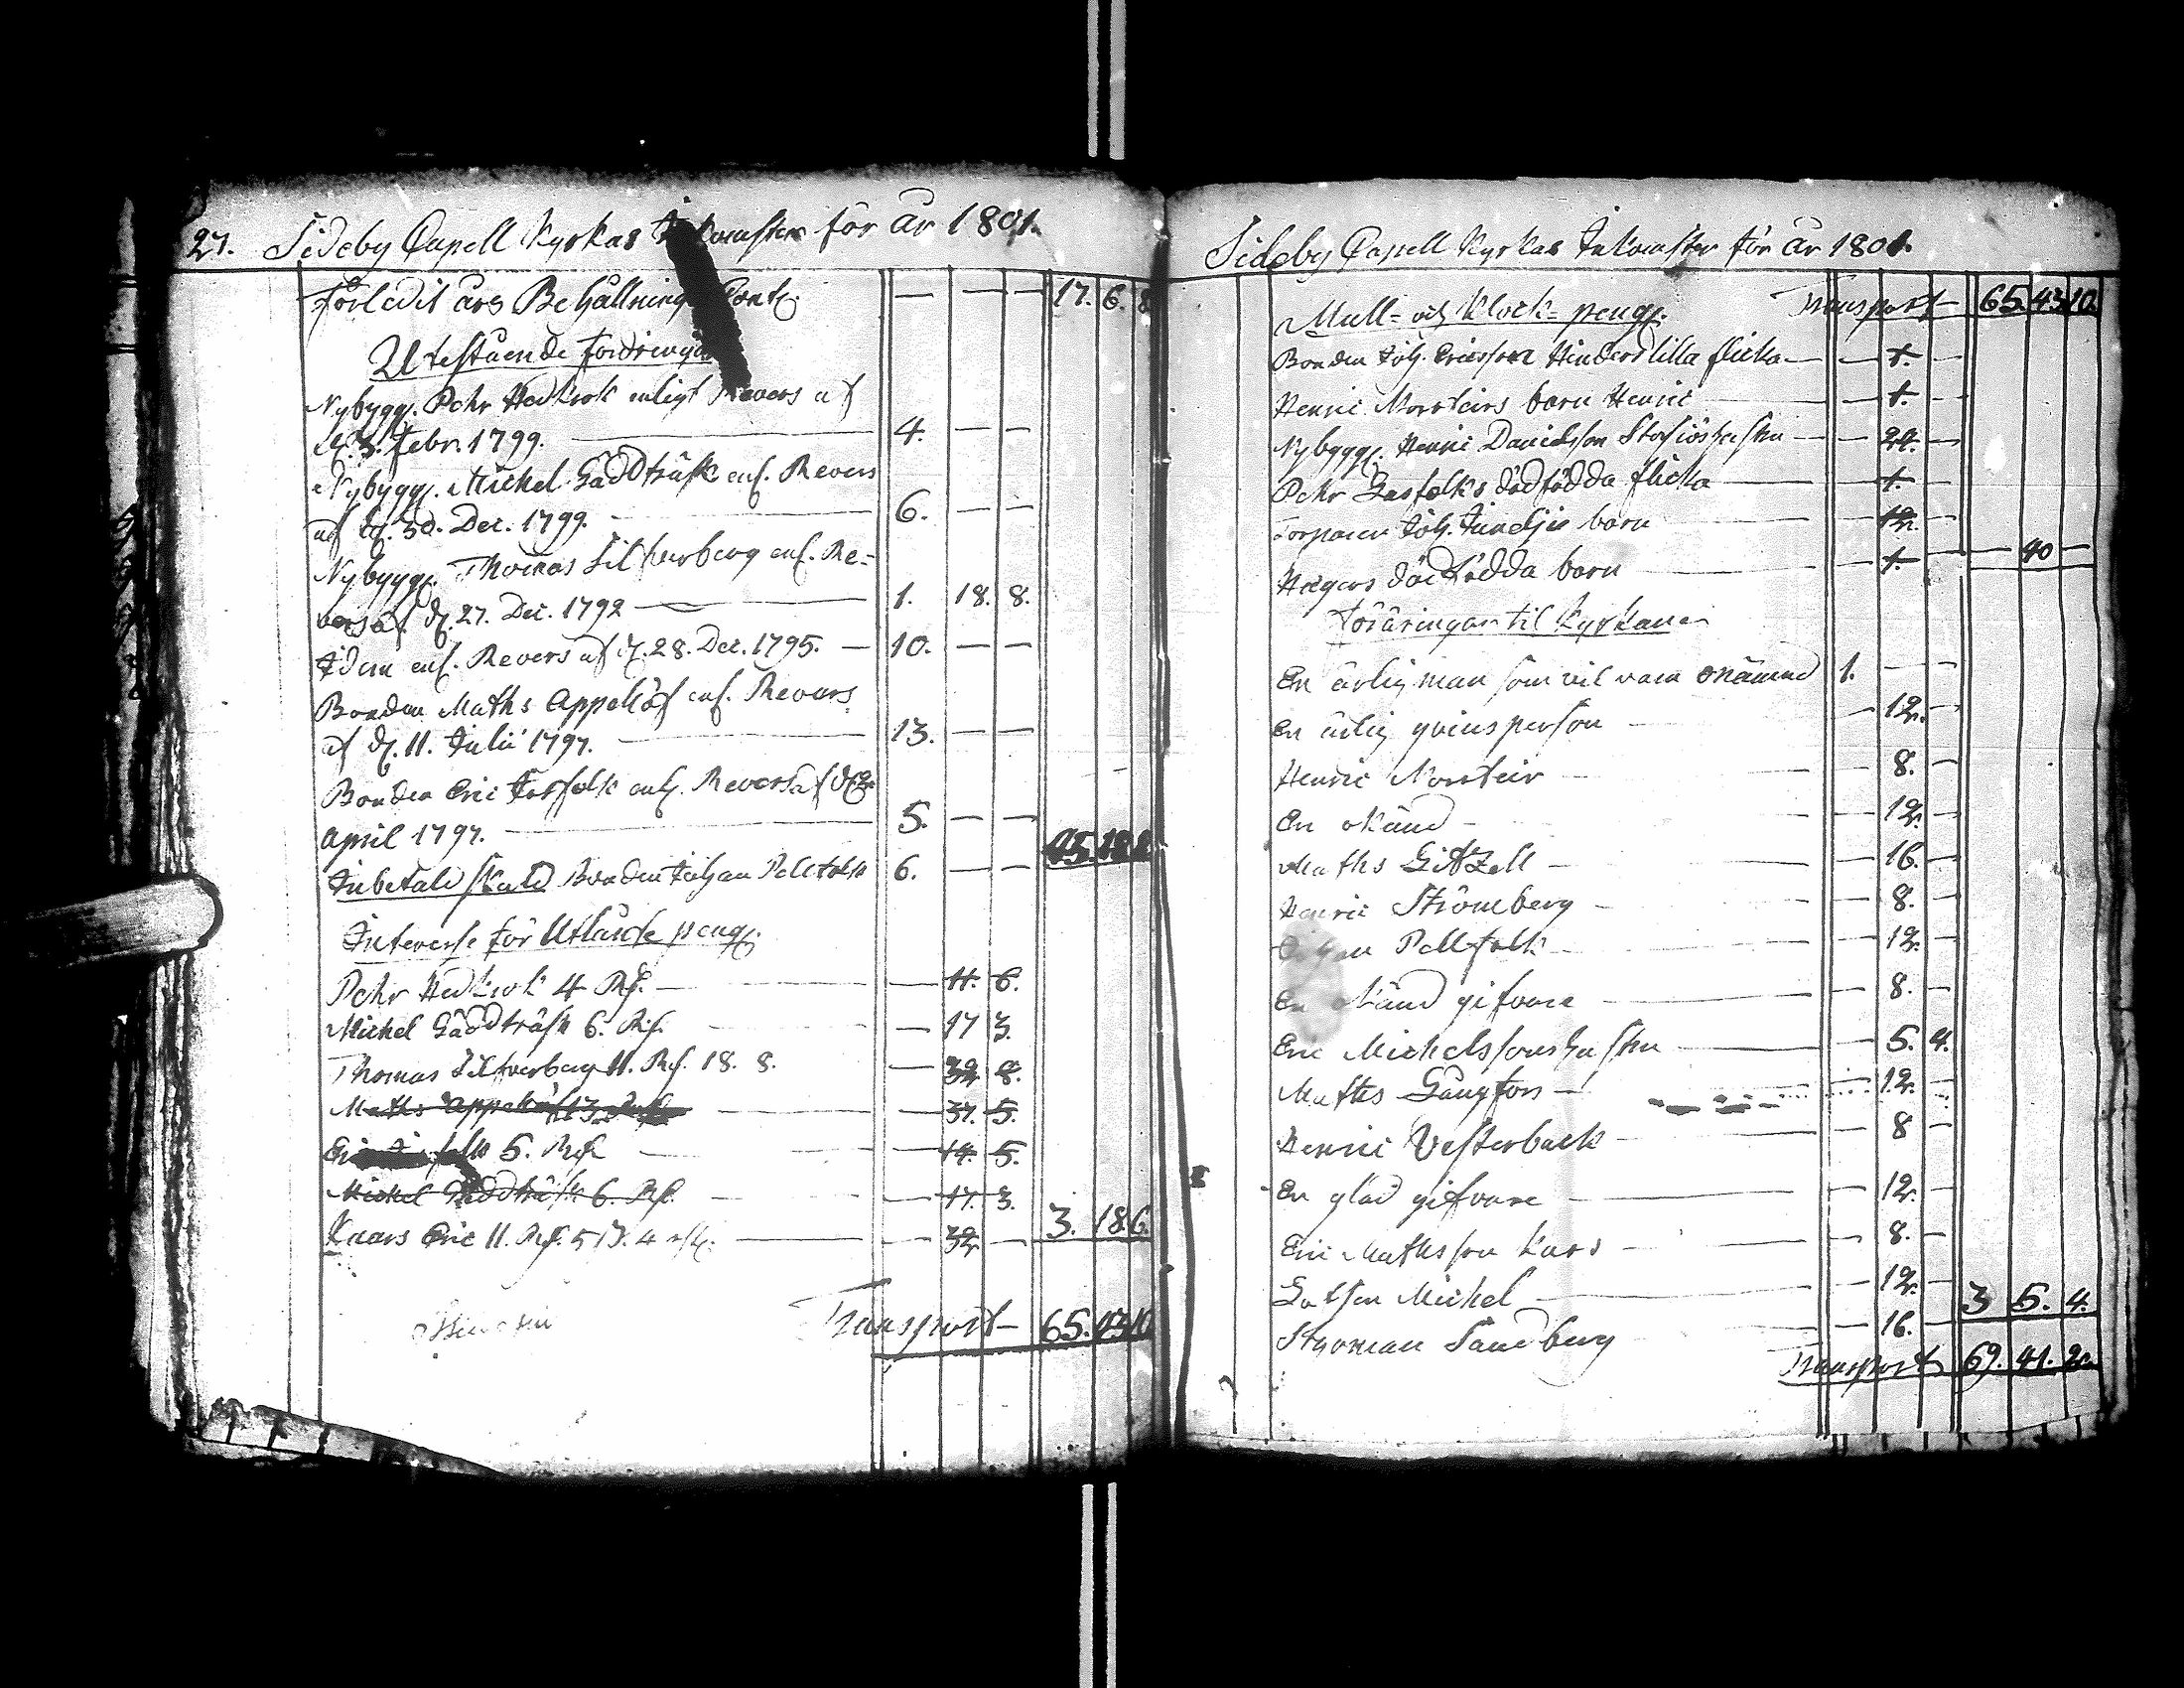 27. Sideby Capell Kyrkas Inkomster för år 1801.
Förledit års Behållning Cont. — — — 17. 6. 8
Utestående fordringar
Nybygg. Pehr Hedkrok enligt Revers af
d. 3. Febr. 1799. — 4. — —
Nybygg. Michel Gäddträsk enl. Revers
af d. 30. Dec. 1799. — 6. — —
Nybygg. Thomas Silfverberg enl. Re-
vers af d. 27. Dec. 1792 — 1. 18. 8.
Idem enl. Revers af d. 28. Dec. 1795. — 10. — —
Bonden Maths Appellöf enl. Revers
af d. 11. Julii 1797. — 13. — —
Bonden Eric enl. Revers af d.
April 1797. — 5. — —
Inbetald skuld Bonden Johan Pellfolk 6. — —
Interesse för Utlånte peng.
Pehr Hedkrok 4 Rd. — — 11. 6.
Michel Gäddträsk 6. Rd. — 17 3.
Thomas Silfverberg 11. Rd. 18. 8. — 32. 8.
Maths Appellöf 13 — 37. 5.
5. Rd. — 14. 5.
Michel Gäddträsk 6. Rd. — 17. 3.
Kaars Eric 11. Rd. 5 4 — 32. — 3. 18. 6.
Transport — 65. 43. 10.
Sideby Capell Kyrkas Inkomster för år 1801.
Transport — 65. 43. 10.
Mull- och Klock- peng.
Bonden Joh. Ericsson Hinders lilla flicka — — 1. —
Henric Norrteirs barn Henric — 1. —
Nybygg. Henric Davidsson — — 24. —
Pehr Gasfolks dödfödda flicka — — 1. —
Torparen Joh. barn — 12.
Hägers dödfödda barn — — 1. — — 40 —
Föräringar til Kyrkan
En ärlig man som vil vara onämnd 1. — —
En ärlig qvinsperson — — 12. —
Henric Norrteir — — 8. —
En okänd — — 12. —
Maths — — 16. —
Henric Strömberg — — 8. —
Johan Pellfolk — — 12. —
En okänd gifvare — — 8. —
Eric Michelssons hustru — — 5. 4.
Maths Långfors — 12. —
Henric Vesterback — — 8 —
En glad gifvare — — 12. —
Eric Mathsson Kars — — 8. —
Michel — — 12. — 3 5. 4.
Styrman Sandberg — 16. —
Transport 69. 41. 2.